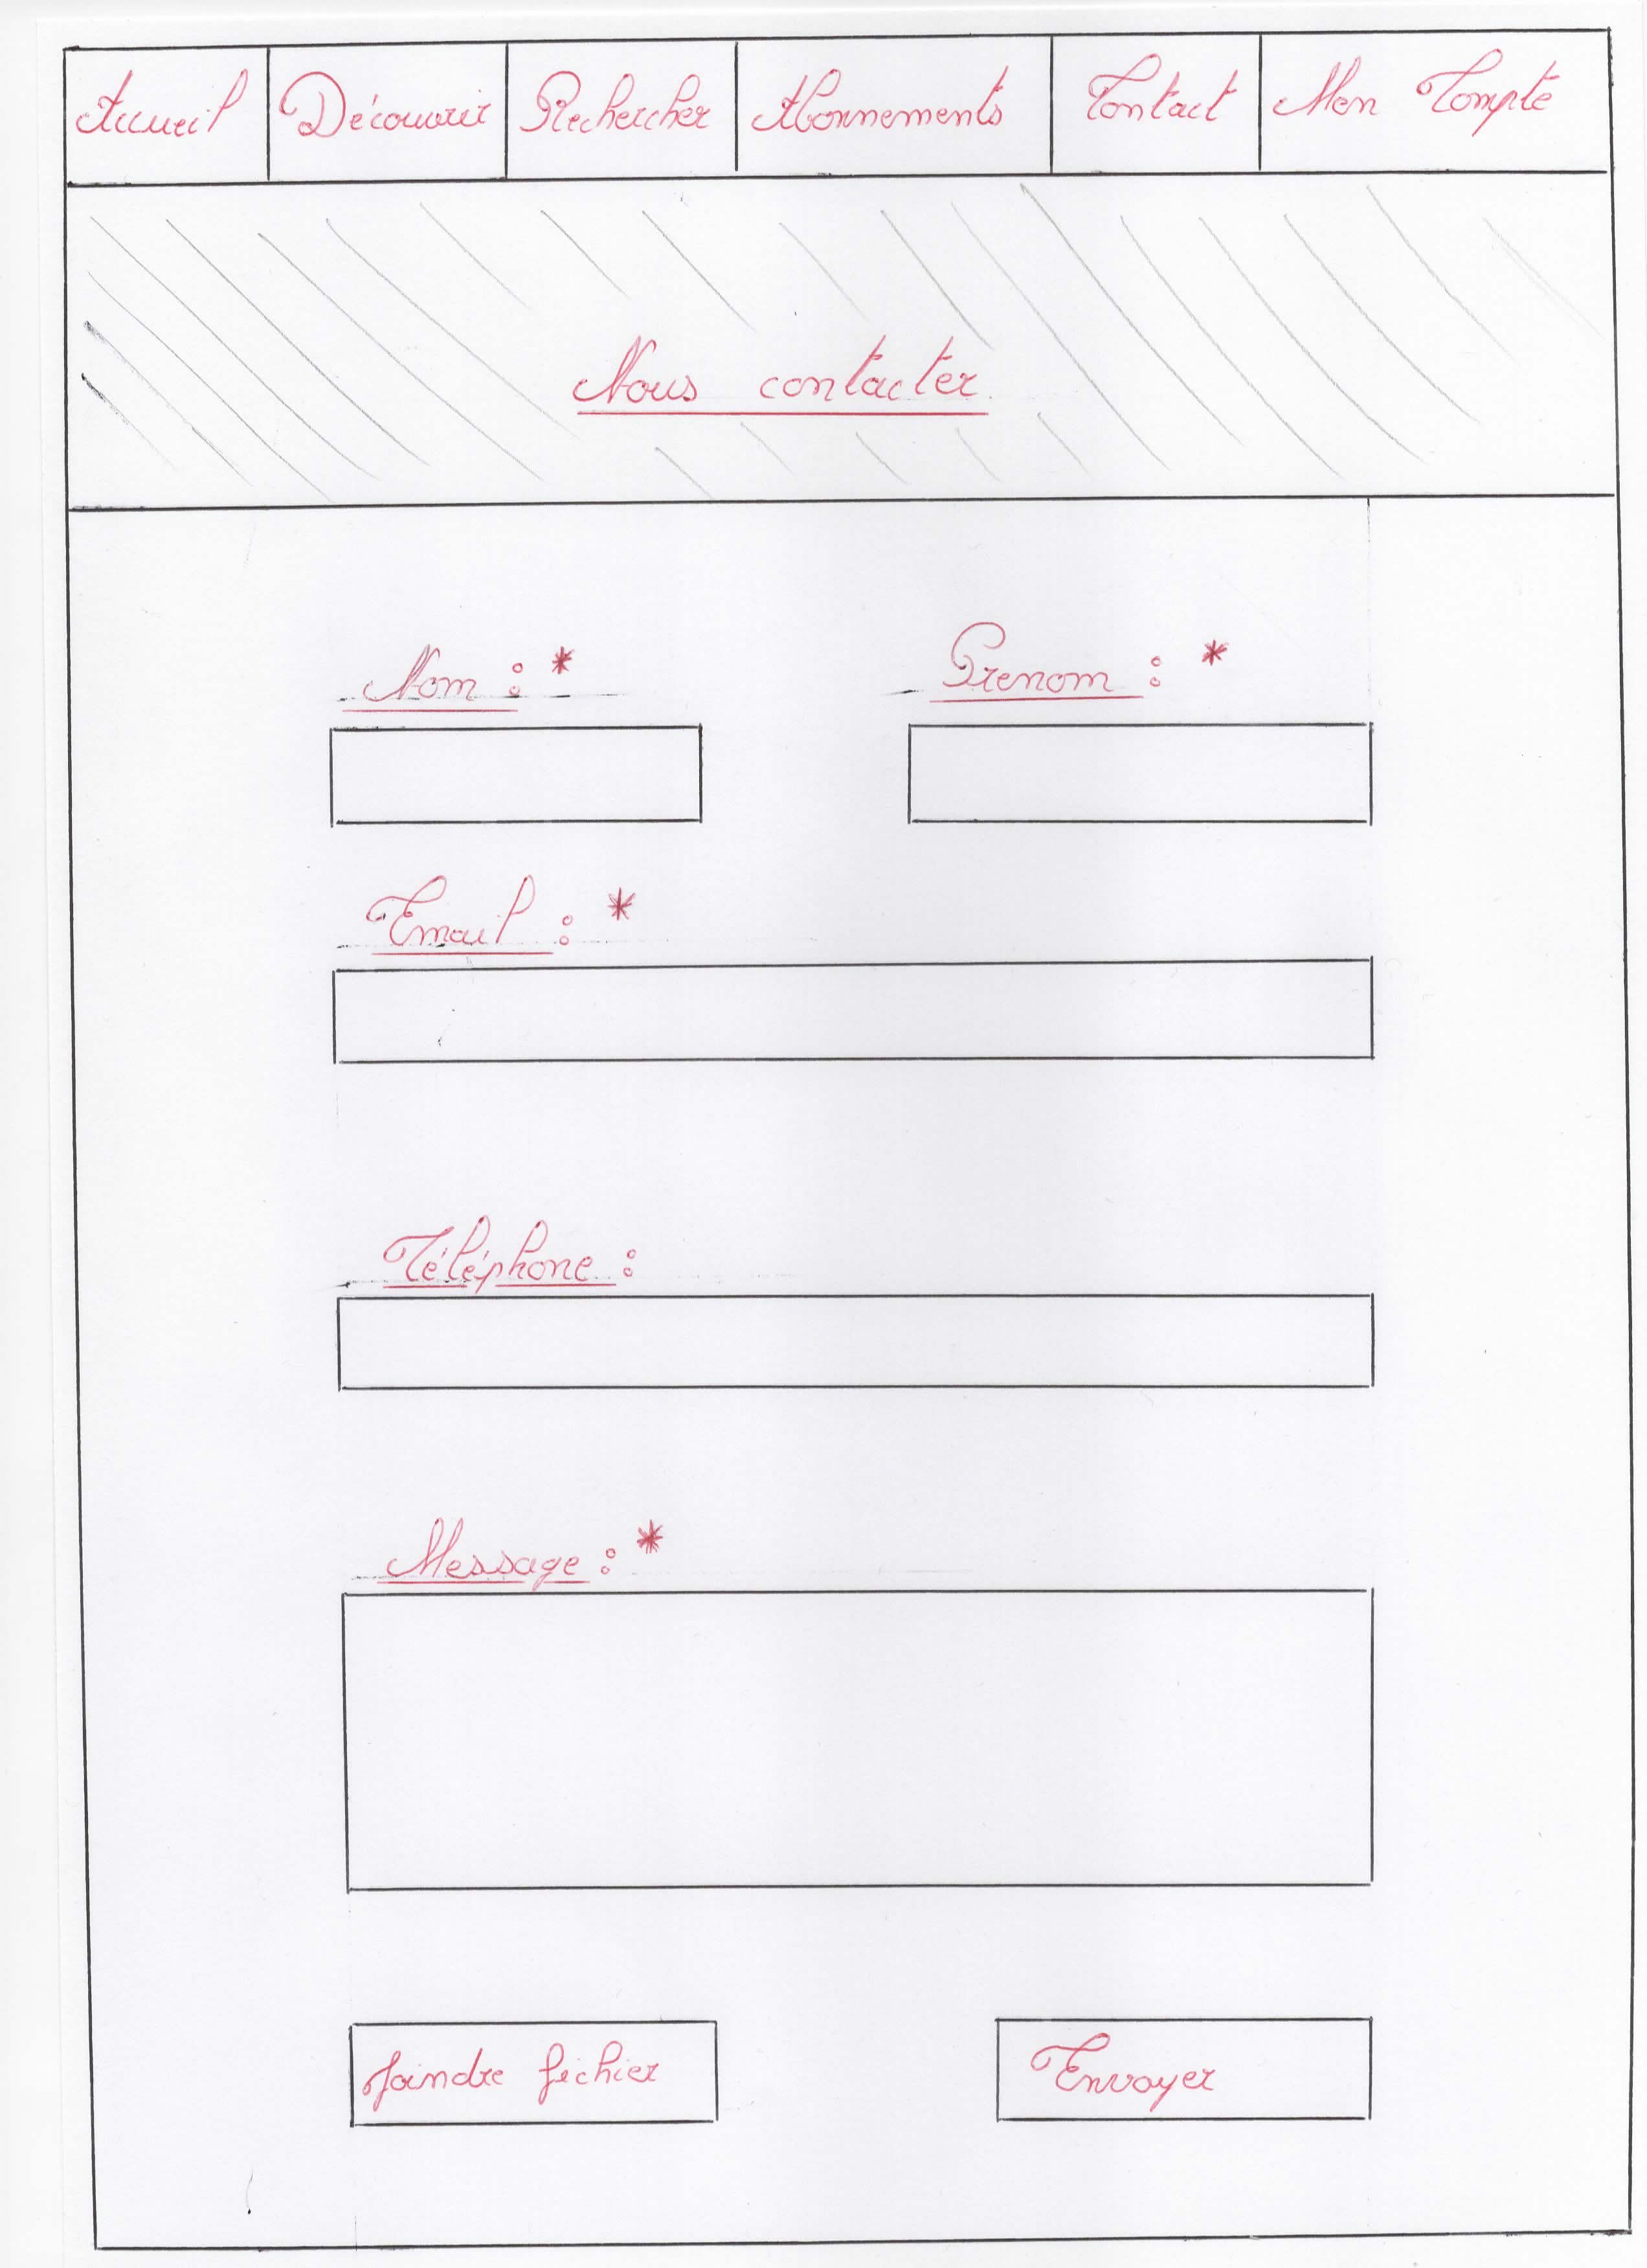 Accueil Découvrir Rechercher Abonnements Contact Mon Compte
Nous contacter
Nom : * Prenom : *
Email : *
Téléphone :
Message : *
Joindre fichier Envoyer